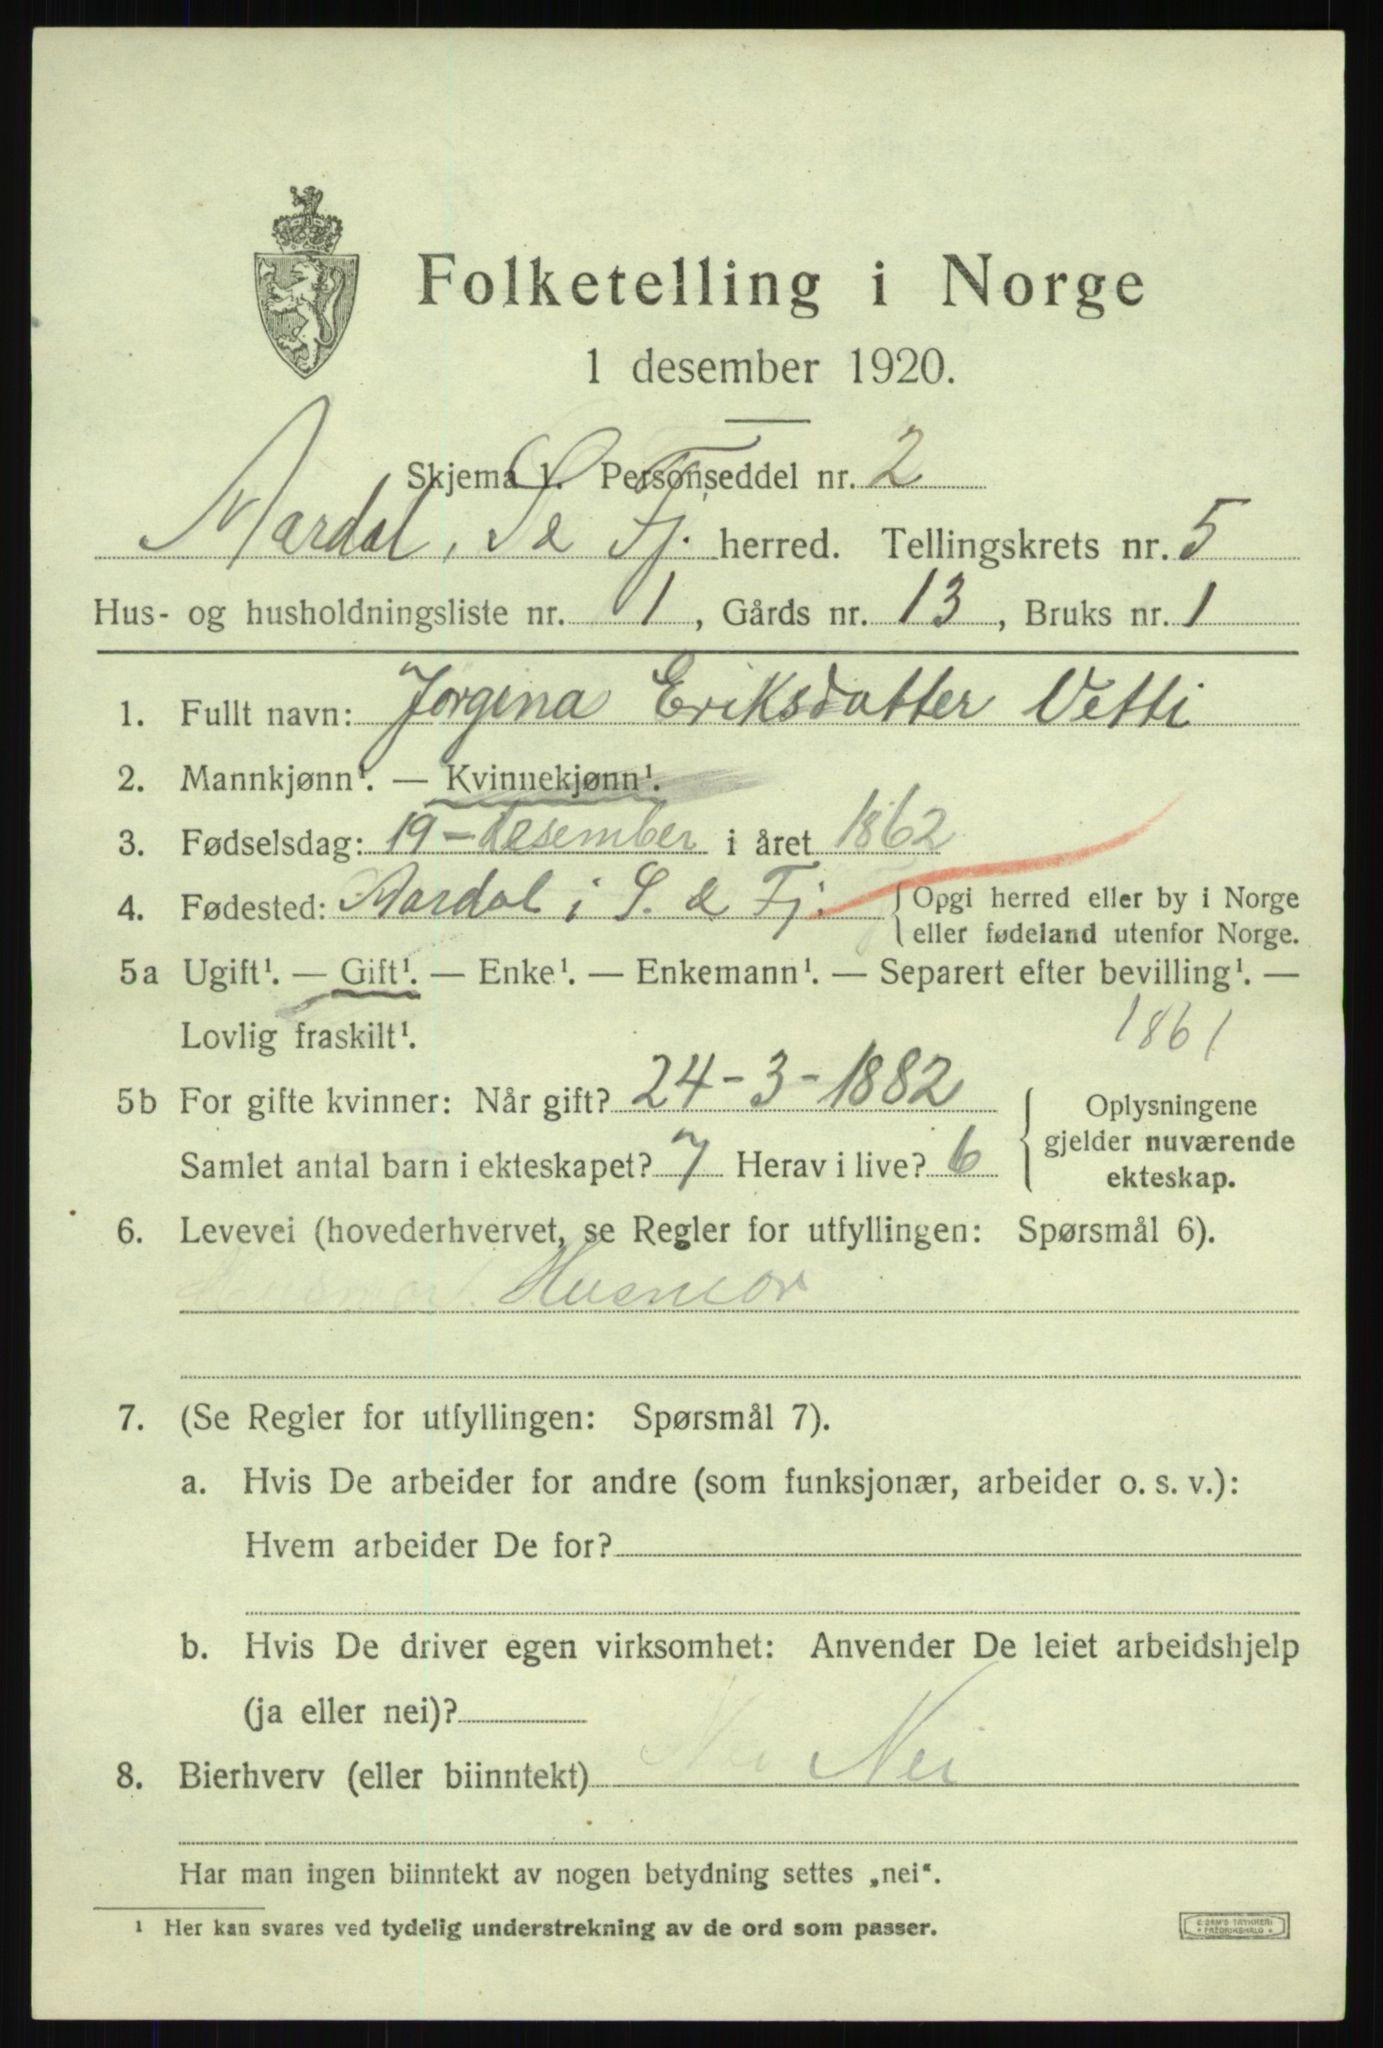 Folketelling i Norge
1 desember 1920.
Skjema 1. Personseddel nr. 2
Aardal, S & Fj. herred. Tellingskrets nr. 5
Hus- og husholdningsliste nr. 1, Gårds nr. 13, Bruks nr. 1
1. Fullt navn: Jorgina Eriksdatter Vetti
2. Mannkjønn¹. — Kvinnekjønn¹.
3. Fødselsdag: 19 - desember i året 1862
4. Fødested: Aardal i S. & Fj. { Opgi herred eller by i Norge
eller fødeland utenfor Norge.
5a Ugift¹. — Gift¹. — Enke¹. — Enkemann¹. — Separert efter bevilling¹. —
Lovlig fraskilt¹. 1861
5b For gifte kvinner: Når gift? 24-3-1882
Samlet antal barn i ekteskapet? 7 Herav i live? 6
{ Oplysningene
gjelder nuværende
ekteskap.
6. Levevei (hovederhvervet, se Regler for utfyllingen: Spørsmål 6).
Husmor. Husmor
7. (Se Regler for utfyllingen: Spørsmål 7).
a. Hvis De arbeider for andre (som funksjonær, arbeider o. s. v.):
Hvem arbeider De for?
b. Hvis De driver egen virksomhet: Anvender De leiet arbeidshjelp
(ja eller nei)?
8. Bierhverv (eller biinntekt) Nei Nei
Har man ingen biinntekt av nogen betydning settes „nei“.
¹ Her kan svares ved tydelig understrekning av de ord som passer.